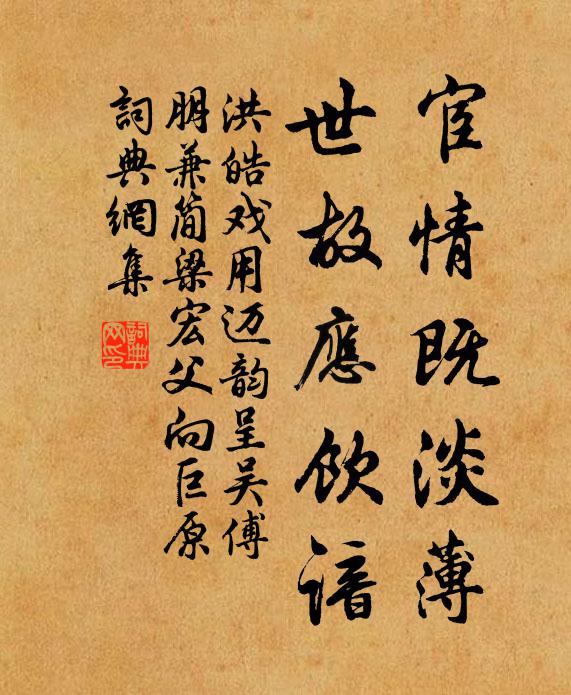 宦情既淡薄
世故應飲諳
洪皓戏用迈韵呈吴傅
朋兼简梁宏父向巨原
詞典網集
詞典网印